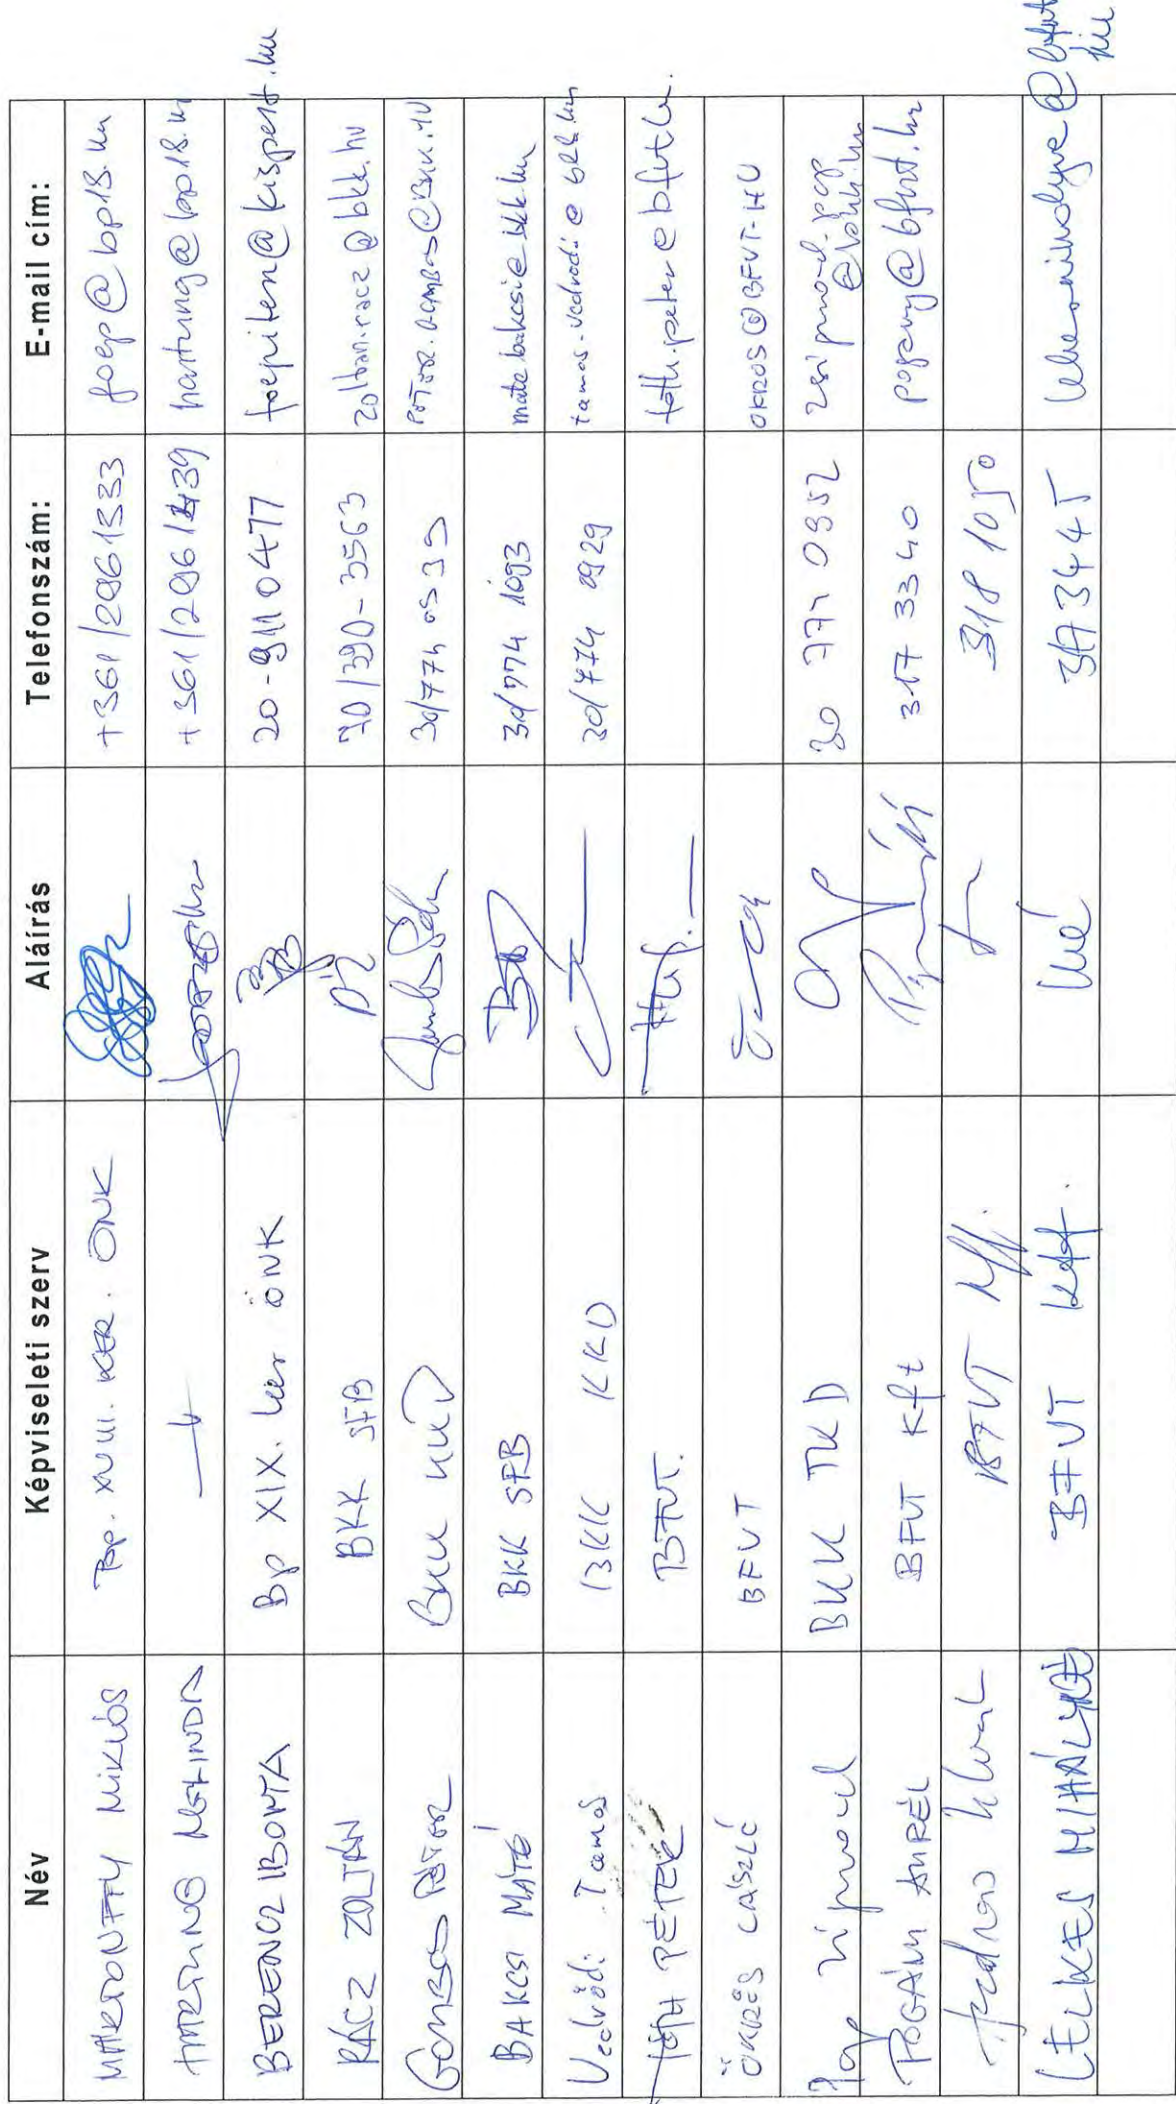 Név Képviseleti szerv Aláírás Telefonszám: E-mail cím:
MARTONFFY Miklós Bp. XVIII. KER. ÖNK +361/2961333 foep@bp18.hu
HARTUNG MELINDA +361/2961439 hartung@bp18.hu
BERENCZ IBOLYA Bp XIX. ker ÖNK 20-9110477 foepiten@kispest.hu
RÁCZ ZOLTÁN BKK SFB 70/390-3563 zoltan.racz@bkk.hu
GOMBOS Péter BKK 30/774 0539
BAKCSI MÁTÉ BKK SFB 30/774 1093 mate.bakcsi@bkk.hu
Vedrődi Tamás BKK KKD 30/774 0929 tamas.vedrodi@bkk.hu
TÓTH PÉTER BFVT. toth.peter@bfvt.hu
ÖKRÖS LÁSZLÓ BFVT OKROS@BFVT.HU
Pap Zsigmond BKK TKD 30 771 0352 zsigmond.pap
@bkk.hu
POGÁNY AURÉL BFVT Kft 317 33 40 pogany@bfvt.hu
BFVT Kft. 318 1050
LELKES MIHÁLYNÉ BFVT Kft. 317 3445 lelkesmihalyne@bfvt.
hu